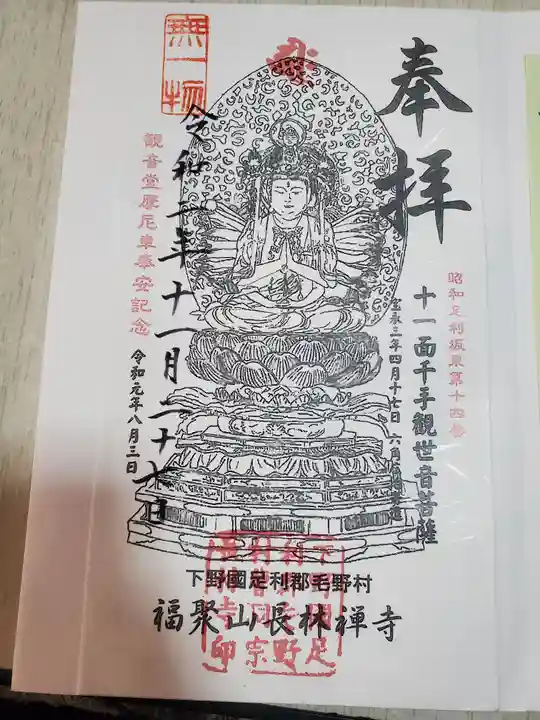 奉拝
昭和足利坂東第十四番
十一面千手観世音菩薩
宝永三年四月十七日
無一物
令和二年十一月二十七日
観音堂摩尼車奉安記念
令和元年八月三日
下野國足利郡毛野村
福聚山長林禅寺